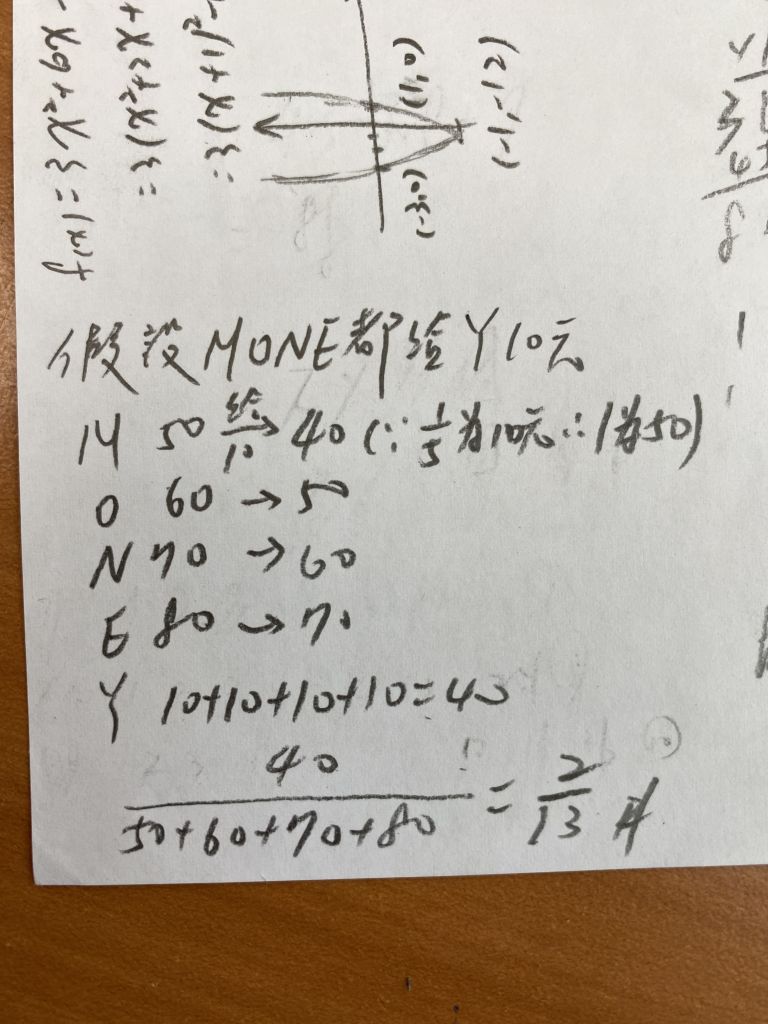 f(x) = 3x²+6x-
= 3(x²+2x+
= 3(x+1)²-
(1,0)
(-3,0)
(-1,-12)
假設MONE都給Y10元
M 50 給/10→ 40 (∵ 1/5 為10元 ∴ 1為50)
O 60 → 50
N 70 → 60
E 80 → 70
Y 10+10+10+10=40
40/(50+60+70+80) = 2/13 #